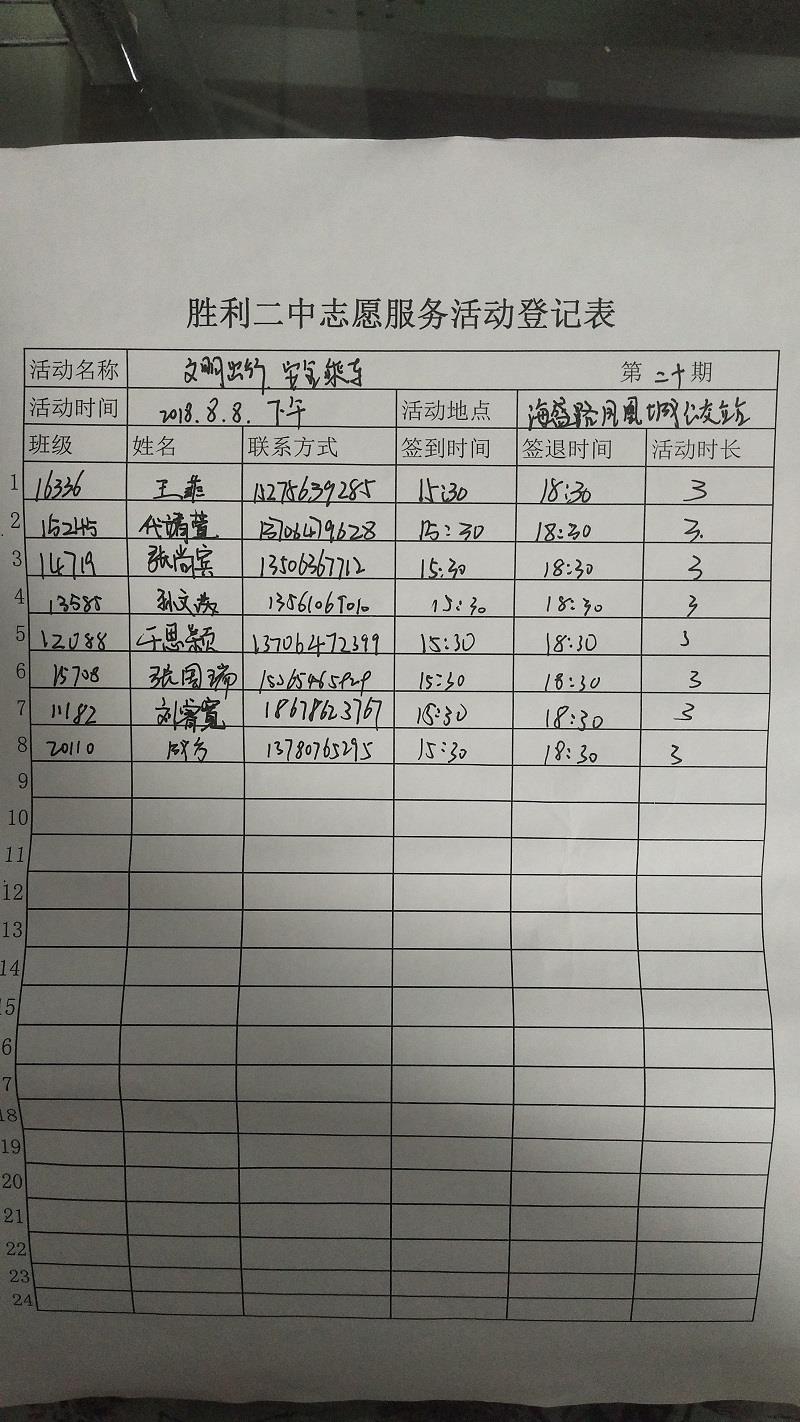 胜利二中志愿服务活动登记表
活动名称 文明出行 安全乘车 第二十期
活动时间 2018.8.8. 下午 活动地点 海盛路凤凰城公交站
班级 姓名 联系方式 签到时间 签退时间 活动时长
1 16336 王菲 15275639285 15:30 18:30 3
2 15245 代婧萱 13706479628 15:30 18:30 3.
3 14719 张尚宾 13506367712 15:30 18:30 3
4 13585 孙文 15:30 18:30 3
5 12088 于思颖 13706472399 15:30 18:30 3
6 15708 张国瑞 15:30 18:30 3
7 11182 刘睿宽 18678623767 15:30 18:30 3
8 20110 13780765295 15:30 18:30 3
9
10
11
12
13
14
15
6
7
18
19
20
21
22
23
24